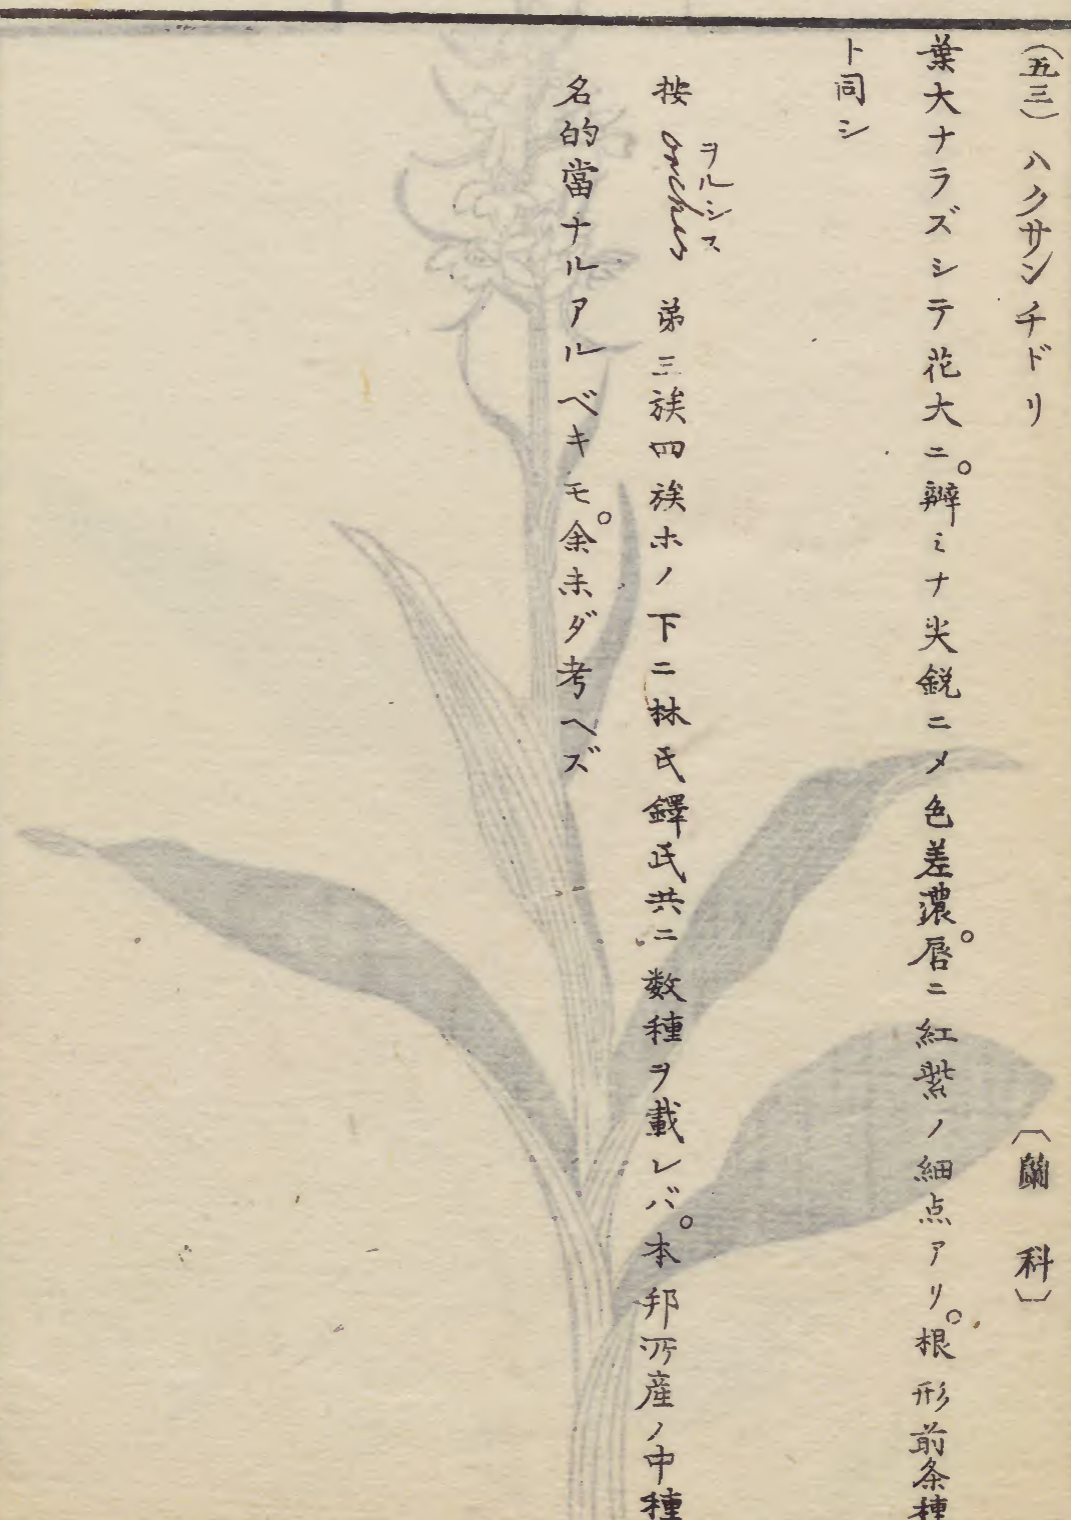 (五三) ハクサンチドリ 〔蘭科〕
葉大ナラズシテ花大ニ。辨ミナ尖鋭ニメ色差濃。唇ニ紅紫ノ細点アリ。根形前条種
ト同シ
按 orchis ヲルシス 苐三族四族ホノ下ニ林氏鐸氏共ニ数種ヲ載レバ。本邦所産ノ中種
名的當ナルアルベキモ。余未ダ考ヘズ